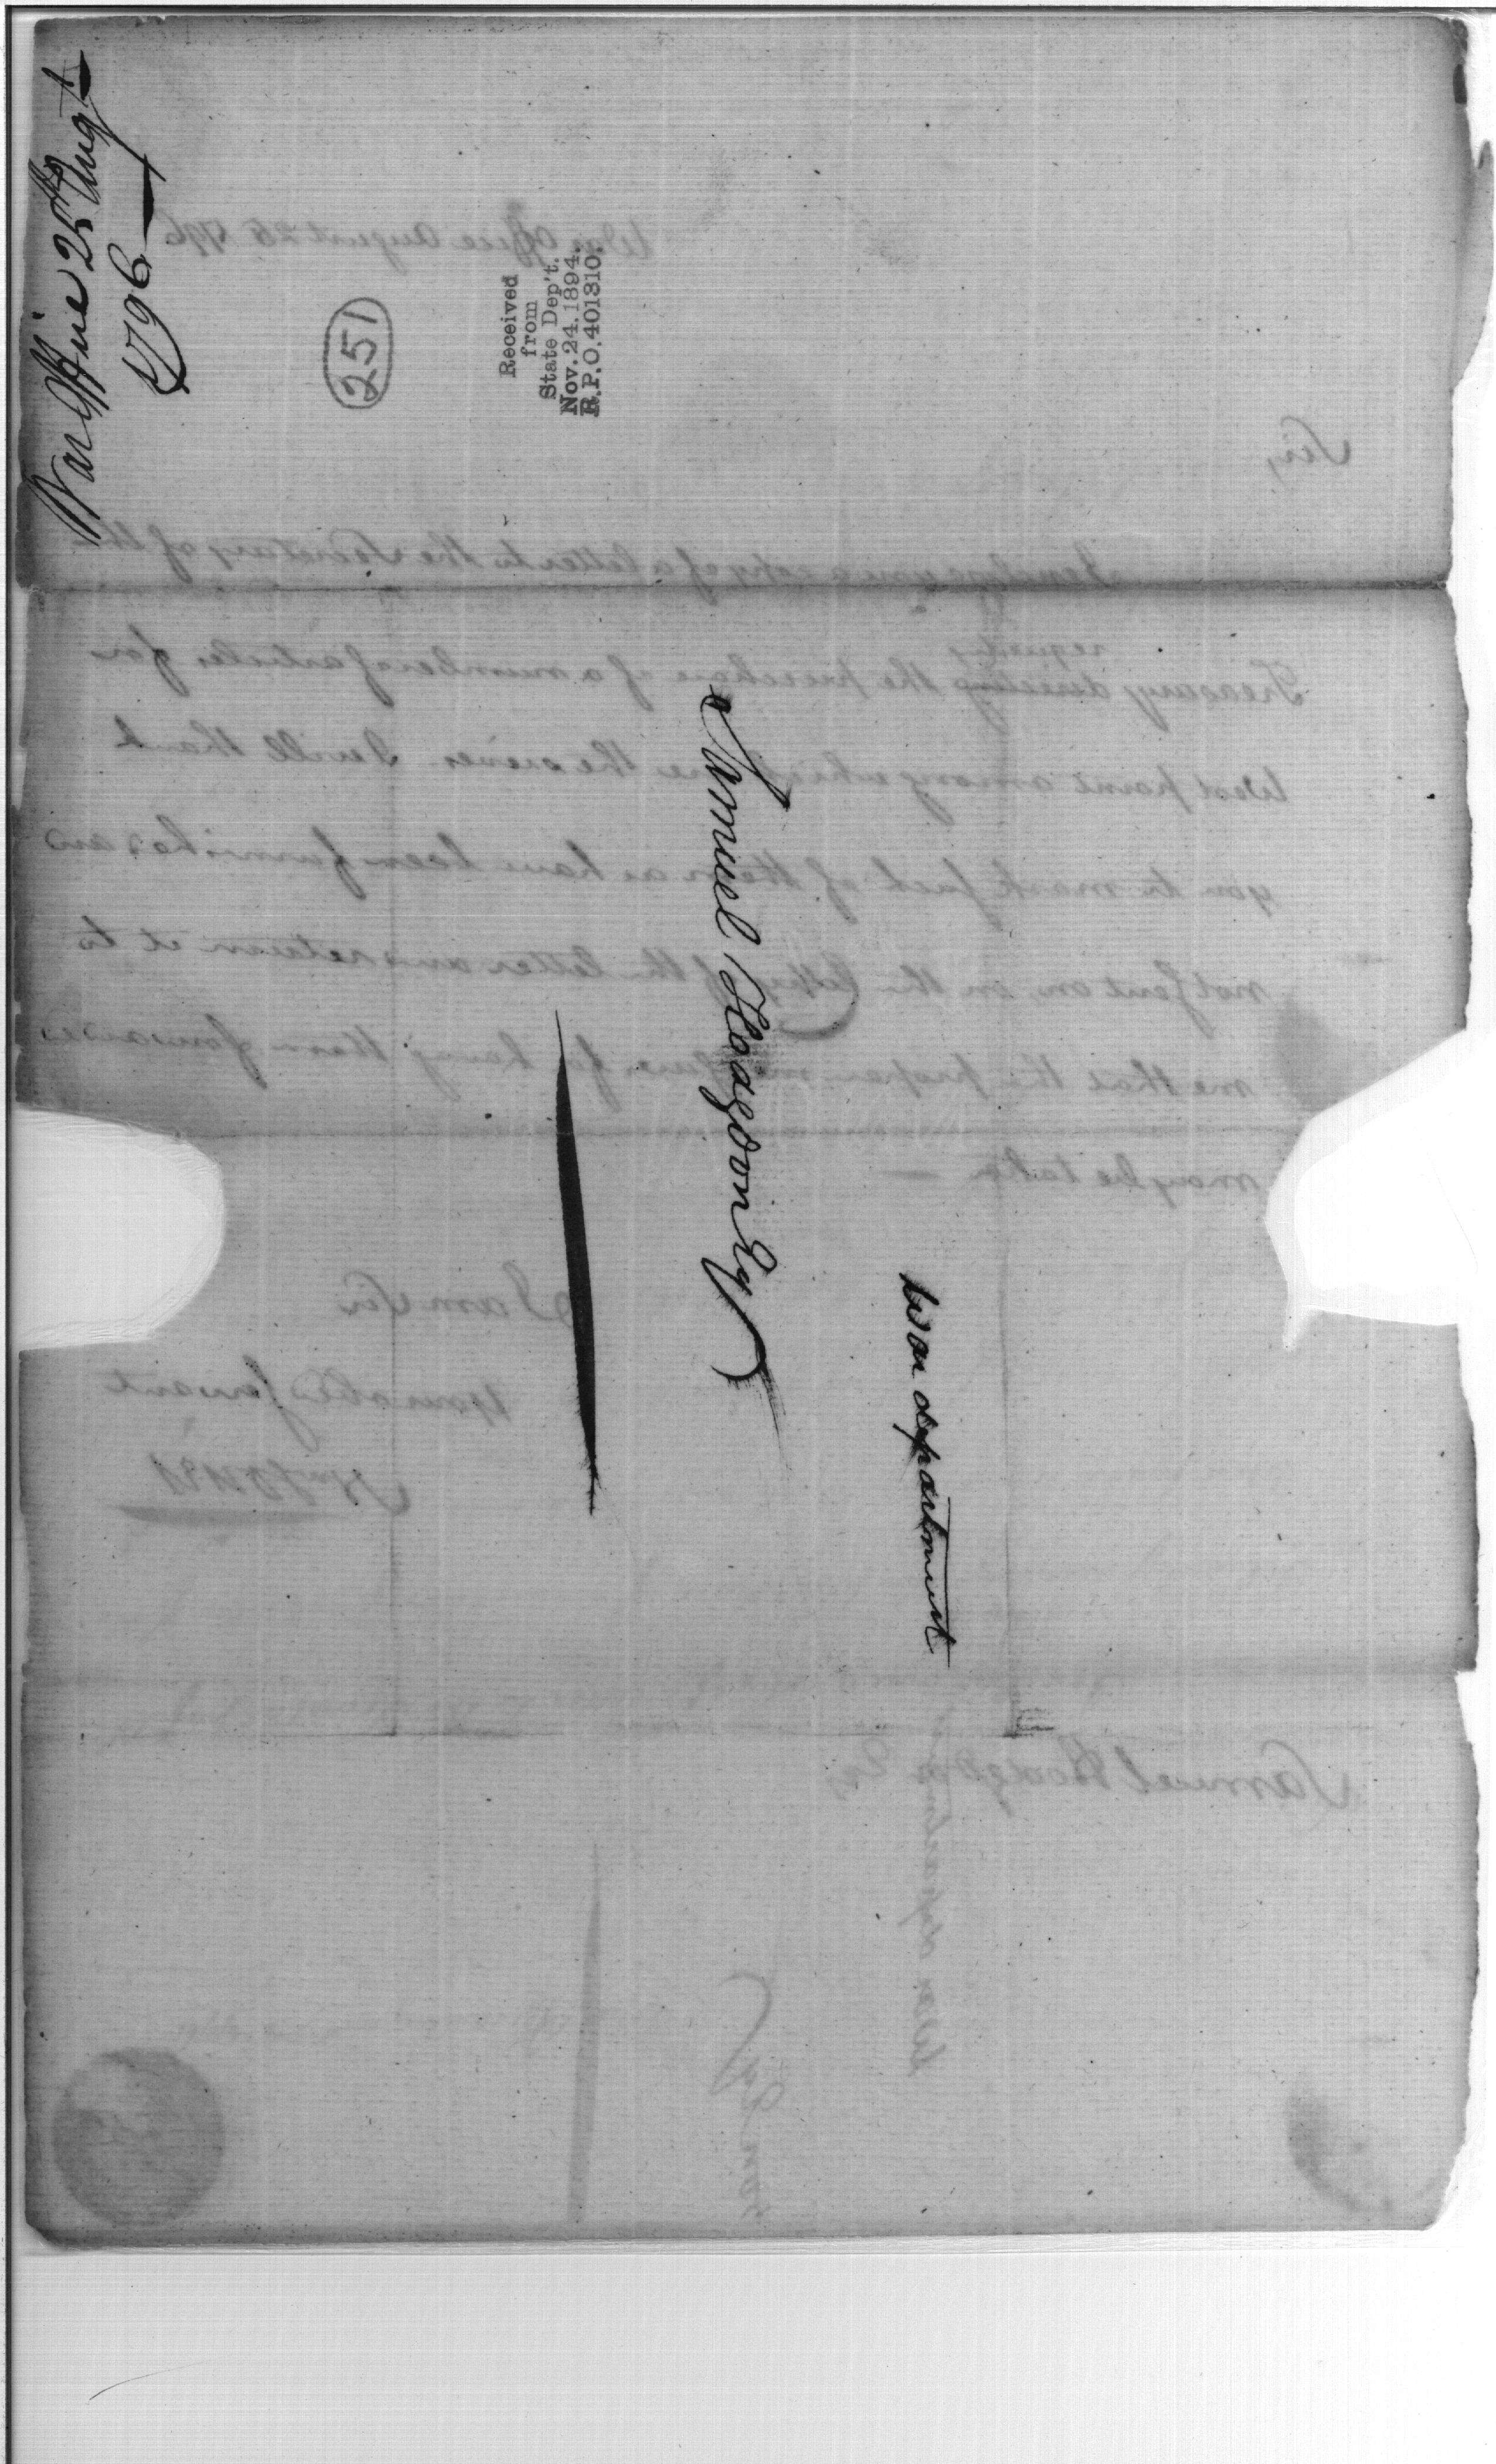 War Office 25th Augt
1796
251
Received
from
State Dep't.
Nov. 24. 1894.
R.P.O. 401310.
Samuel Hodgdon Esqr
War department
War Office August 25 1796
Sir,
I enclose you a copy of a letter to the Secretary of the
requesting
Treasury directing the purchase of a number of articles for
West point among which are the enines I will thank
you to mark such of them as have been furnished and
not sent on, on the Copy of the letter and return it to
me that the proper measures for having them forwarded
may be taken —
I am Sir
Your obed servant
Samuel Hodgdon Esq